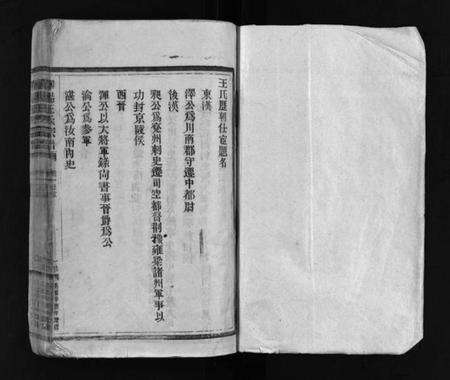 王氏歷朝仕宦題名
東漢
澤公爲川南郡守遷中都尉
後漢
昶公爲兗州刺史遷司空都督荆揚雍梁諸州軍事以
功封京陵侯
西晉
渾公以大將軍錄尚書事晉爵爲公
淪公爲參軍
湛公爲汝南內史